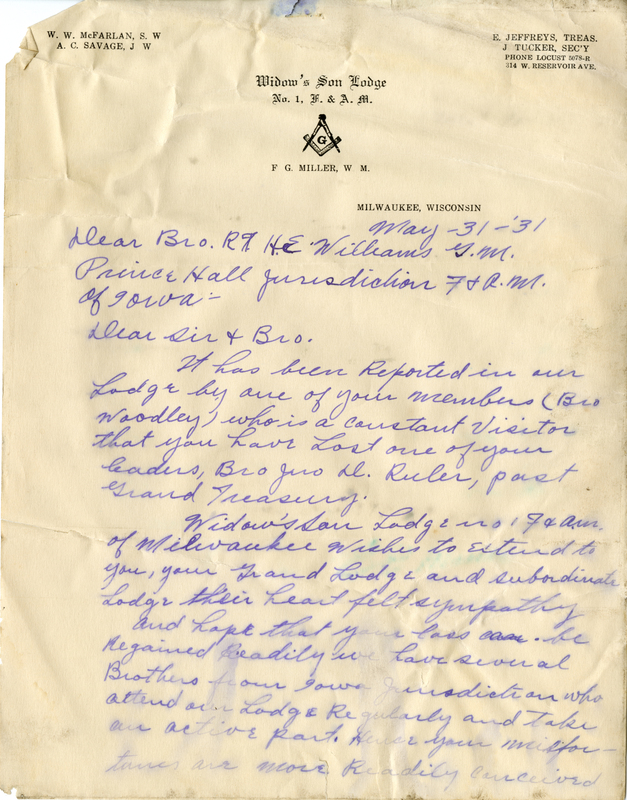 W. W. McFARLAN, S. W
A. C. SAVAGE, J W
E. JEFFREYS, TREAS.
J TUCKER, SEC'Y
PHONE LOCUST 5078-R
314 W. RESERVOIR AVE.
Widow's Son Lodge
No. 1, F. & A. M.
G
F G. MILLER, W M.
MILWAUKEE, WISCONSIN
May -31-'31
Dear Bro. Rt H.E. Williams G.M.
Prince Hall Jurisdiction F & A. M.
of Iowa:-
Dear Sir & Bro.
It has been Reported in our
Lodge by one of your members (Bro
Woodley) who is a constant Visitor
that you have Lost one of your
leaders, Bro Jno D. Ruler, past
Grand Treasury.
Widow's Son Lodge no 1 F & am.
of Milwaukee Wishes to Extend to
you, your Grand Lodge and subordinate
Lodge their heart felt sympathy
and hope that your loss can be
Regained Readily we have several
Brothers from Iowa Jurisdiction who
attend our Lodge Regularly and take
an active part. Hence your misfor-
tunes are more Readily conceived